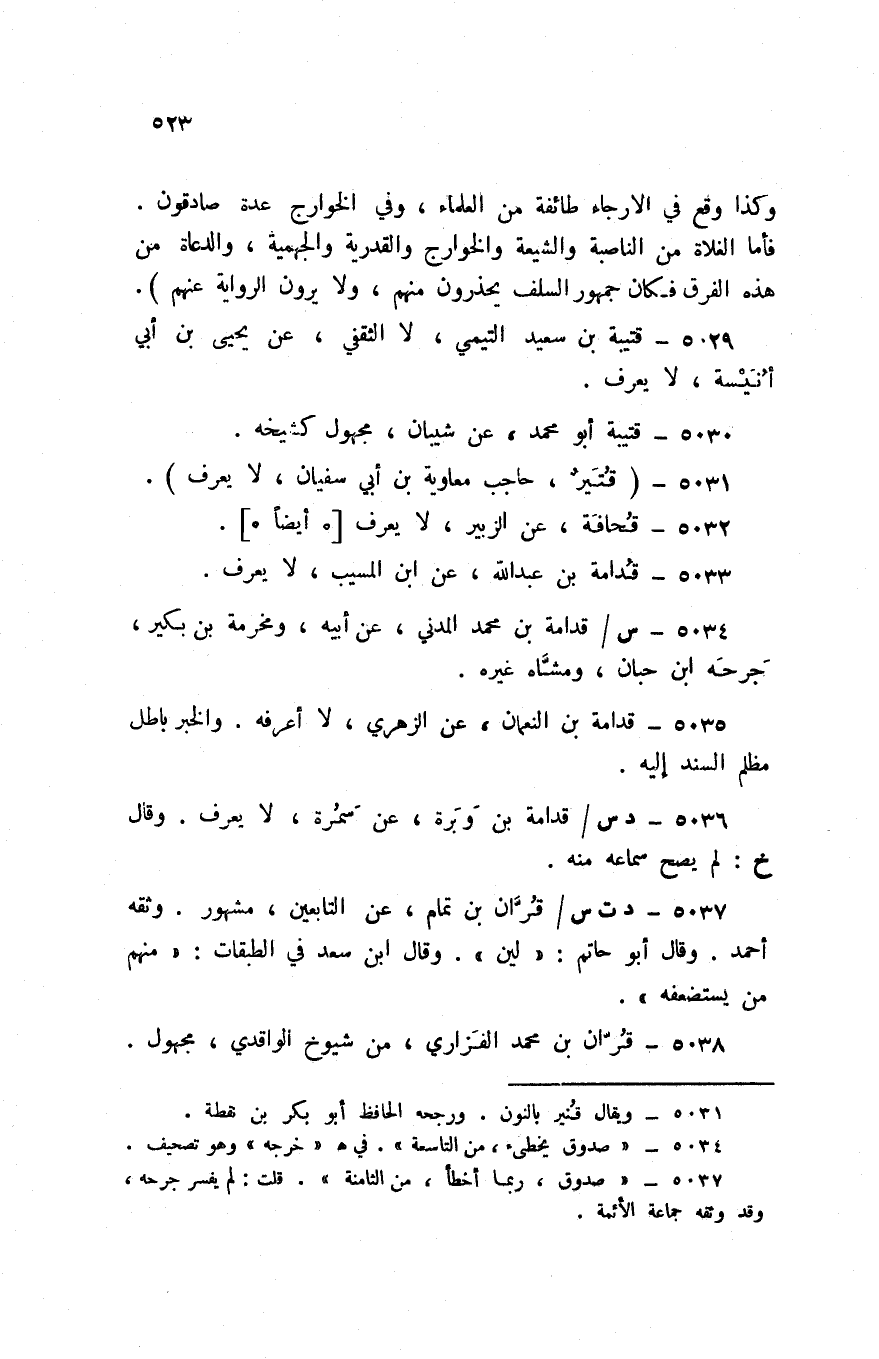 ٥٢٣
وكذا وقع في الارجاء طائفة من العلماء ، وفي الخوارج عدة صادقون .
فأما الغلاة من الناصبة والشيعة والخوارج والقدرية والجهمية ، والدعاة من
هذه الفرق فكان جمهور السلف يحذرون منهم ، ولا يرون الرواية عنهم ) .
٥٠٢٩ – قتيبة بن سعيد التيمي ، لا الثقفي ، عن يحيى بن أبي
أُنَيْسة ، لا يعرف .
٥٠٣٠ – قتيبة أبو محمد ، عن شيبان ، مجهول كشيخه .
٥٠٣١ – ( قُتَير ، حاجب معاوية بن أبي سفيان ، لا يعرف ) .
٥٠٣٢ – قُحافَة ، عن الزبير ، لا يعرف [ه أيضاً ه] .
٥٠٣٣ – قُدامة بن عبدالله ، عن ابن المسيب ، لا يعرف .
٥٠٣٤ – س / قدامة بن محمد المدني ، عن أبيه ، ومخرمة بن بكير ،
جَرحَه ابن حبان ، ومشَّاه غيره .
٥٠٣٥ – قدامة بن النعمان ، عن الزهري ، لا أعرفه . والخبر باطل
مظلم السند إليه .
٥٠٣٦ – د س / قدامة بن وَبَرة ، عن سَمُرة ، لا يعرف . وقال
خ : لم يصح سماعه منه .
٥٠٣٧ – د ت س / قُرَّان بن تمام ، عن التابعين ، مشهور . وثقه
أحمد . وقال أبو حاتم : « لين » . وقال ابن سعد في الطبقات : « منهم
من يستضعفه » .
٥٠٣٨ – قُرّان بن محمد الفَزاري ، من شيوخ الواقدي ، مجهول .
٥٠٣١ – ويقال قُنير بالنون . ورجحه الحافظ أبو بكر بن نقطة .
٥٠٣٤ – « صدوق يخطىء ، من التاسعة » . في ه « خرجه » وهو تصحيف .
٥٠٣٧ – « صدوق ، ربما أخطأ ، من الثامنة » . قلت : لم يفسر جرحه ،
وقد وثقه جماعة الأئمة .